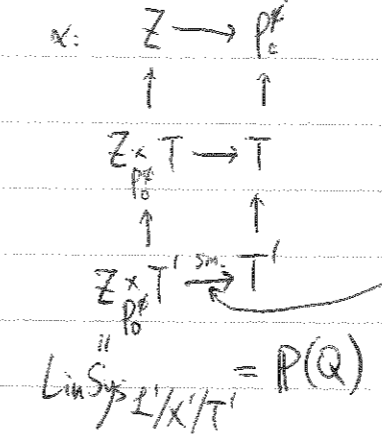 α: Z → P_c^φ
↑ ↑
Z ×_{P_0^φ} T → T
↑ ↑
Z ×_{P_0^φ} T' →^{sm.} T'
=
LinSys_{L'/X'/T'} = ℙ(Q)